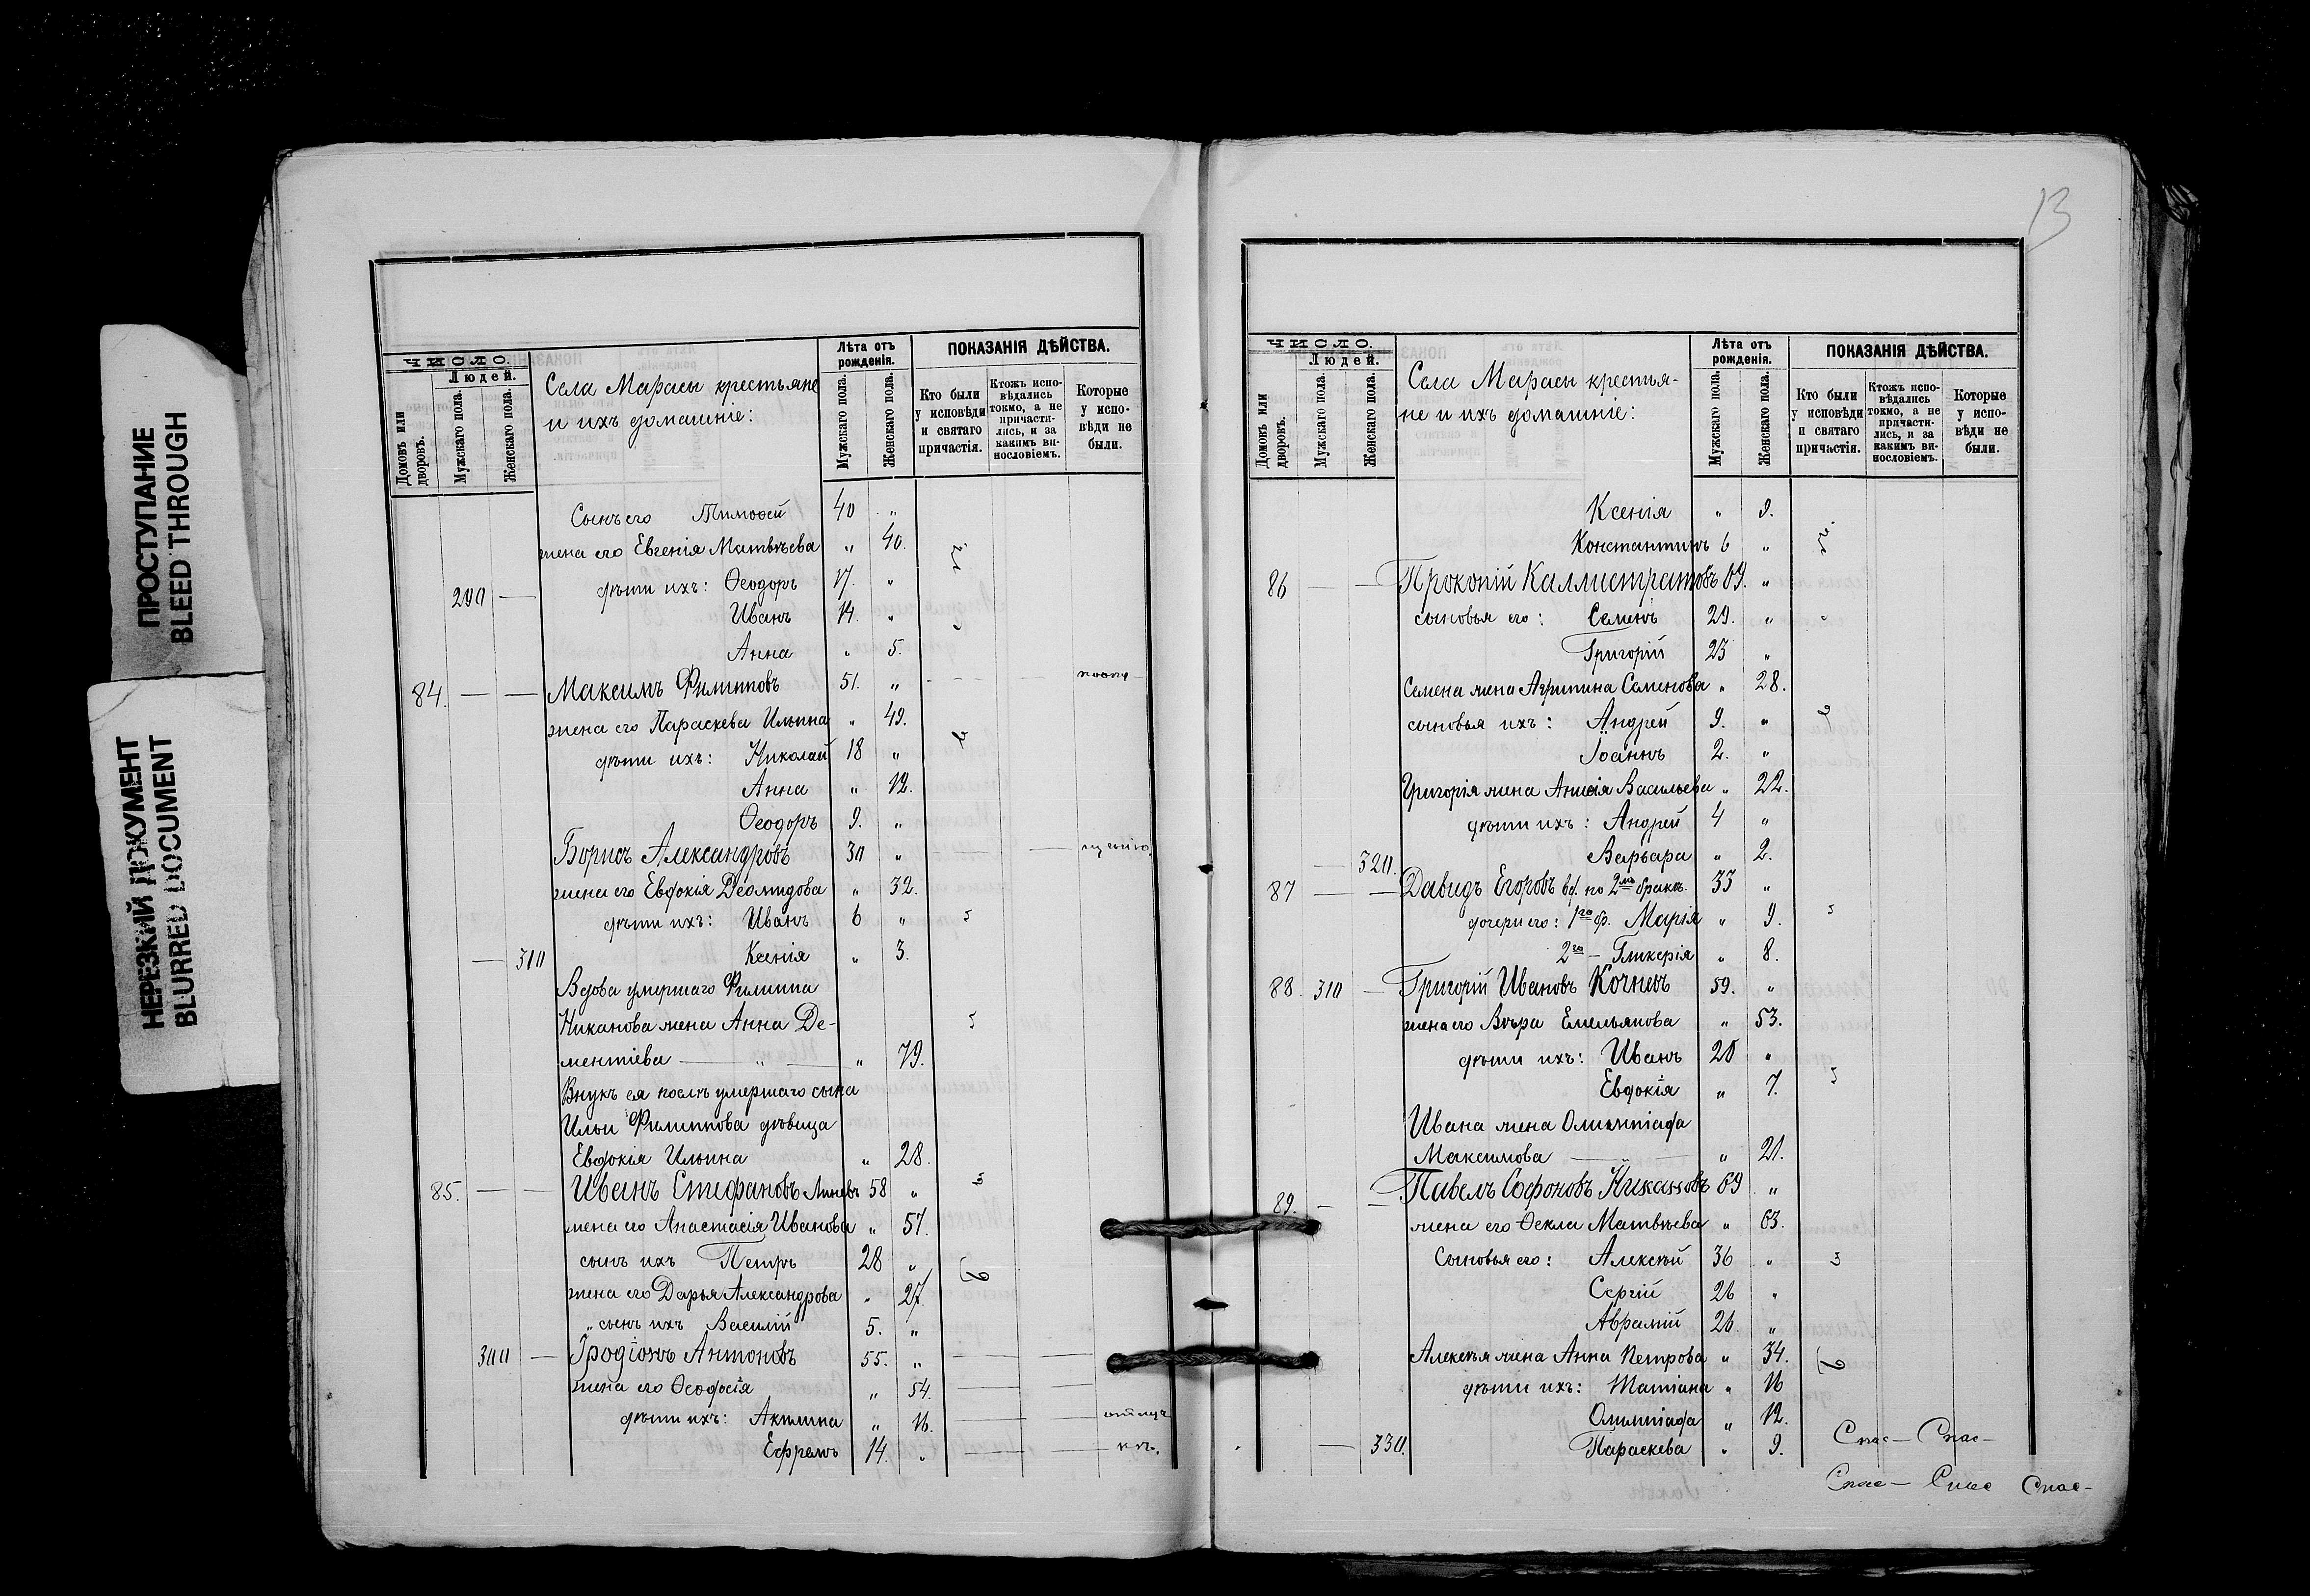 ПРОСТУПАНИЕ
BLEED THROUGH
НЕРЕЗКИЙ ДОКУМЕНТ
BLURRED DOCUMENT
ЧИСЛО.
Людей.
Домовъ или дворовъ.
Мужскаго пола.
Женскаго пола.
Села Марасы крестьяне
и ихъ домашніе:
Лѣта отъ рожденія.
Мужскаго пола.
Женскаго пола.
ПОКАЗАНІЯ ДѢЙСТВА.
Кто были у исповѣди и святаго причастія.
Ктожъ испо-вѣдались токмо, а не причасти-лись, и за какимъ ви-нословіемъ.
Которые у испо-вѣди не были.
Сынъ его Тимоѳей 40 „
жена его Евгенія Матвѣева „ 40.
290 — дѣти их: Ѳеодоръ 17. „
Иванъ 14. „
Анна „ 5.
84. — — Максимъ Филипповъ 51. „
жена его Параскева Ильина „ 49.
дѣти ихъ: Николай 18 „
Анна „ 12.
Ѳеодоръ 9. „
Борисъ Александровъ 30 „
жена его Евдокія Деомидова „ 32.
дѣти ихъ: Иванъ 6 „
— 310 Ксенія „ 3.
Вдова умершаго Филиппа
Никанова жена Анна Де-
ментіева — „ — „ 79.
Внукъ ея послѣ умершаго сына
Ильи Филиппова дѣвица
Евдокія Ильина „ 28.
85. — — Иванъ Стефановъ 58 „
жена его Анастасія Иванова „ 57.
сынъ ихъ Петръ 28 „
жена его Дарья Александрова „ 27.
„ сынъ ихъ Василій 5. „
300 — Іродіонъ Антоновъ 55. „
жена его Ѳеодосія „ 54.
дѣти ихъ: Акилина „ 16.
Ефремъ 14. „
13
ЧИСЛО.
Людей.
Домовъ или дворовъ.
Мужскаго пола.
Женскаго пола.
Села Марасы крестья-
не и ихъ домашніе:
Лѣта отъ рожденія.
Мужскаго пола.
Женскаго пола.
ПОКАЗАНІЯ ДѢЙСТВА.
Кто были у исповѣди и святаго причастія.
Ктожъ испо-вѣдались токмо, а не причасти-лись, и за какимъ ви-нословіемъ.
Которые у испо-вѣди не были.
Ксенія „ 9.
Константинъ 6 „
86 — — Прокопій Каллистратовъ 69. „
сыновья его: Семенъ 29. „
Григорій 23 „
Семена жена Агрипина Семенова „ 28.
сыновья ихъ: Андрей 9. „
Іоаннъ 2. „
Григорія жена Анисія Васильева „ 22.
дѣти ихъ: Андрей 4 „
— 320. Варвара „ 2.
87 — — Давидъ Егоровъ вд. по 2мъ бракѣ. 33 „
дочери его: 1го б. Марія „ 9.
2го — Гликерія „ 8.
88. 310 — Григорій Ивановъ Кочневъ 59. „
жена его Вѣра Емельянова „ 53.
дѣти ихъ: Иванъ 20 „
Евдокія „ 7.
Ивана жена Олимпіада
Максимова — „ — „ 21.
89. — — Павелъ Софоновъ Никановъ 69 „
жена его Ѳекла Матвѣева „ 63.
Сыновья его: Алексѣй 36 „
Сергій 26 „
Аврамій 26. „
Алексѣя жена Анна Петрова „ 34.
дѣти ихъ: Татіана „ 16
Олимпіада „ 12.
— 330. Параскева „ 9.
Спас— Спас—
Спас— Спас Спас—